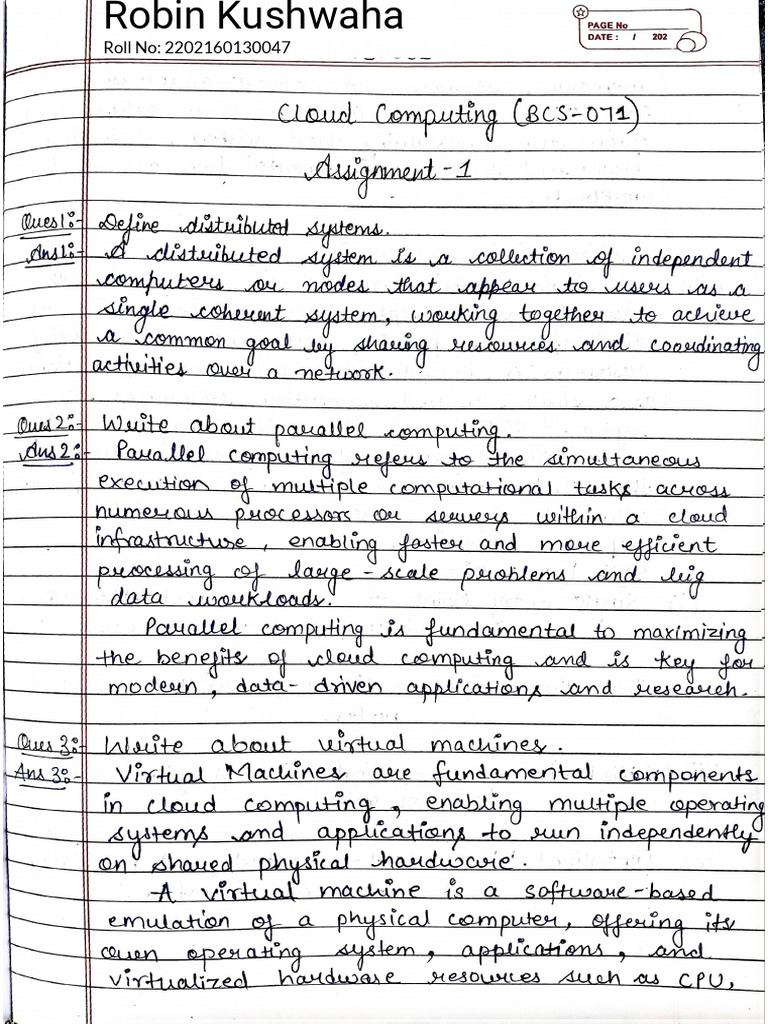 Robin Kushwaha
Roll No: 2202160130047
PAGE No
DATE : / 202
Cloud Computing (BCS-071)
Assignment - 1
Ques 1:- Define distributed systems.
Ans 1:- A distributed system is a collection of independent
computers or nodes that appear to users as a
single coherent system, working together to achieve
a common goal by sharing resources and coordinating
activities over a network.
Ques 2:- Write about parallel computing.
Ans 2:- Parallel computing refers to the simultaneous
execution of multiple computational tasks across
numerous processors or servers within a cloud
infrastructure, enabling faster and more efficient
processing of large-scale problems and big
data workloads.
Parallel computing is fundamental to maximizing
the benefits of cloud computing and is key for
modern, data-driven applications and research.
Ques 3:- Write about virtual machines.
Ans 3:- Virtual Machines are fundamental components
in cloud computing, enabling multiple operating
systems and applications to run independently
on shared physical hardware.
A virtual machine is a software-based
emulation of a physical computer, offering its
own operating system, applications, and
virtualized hardware resources such as CPU,